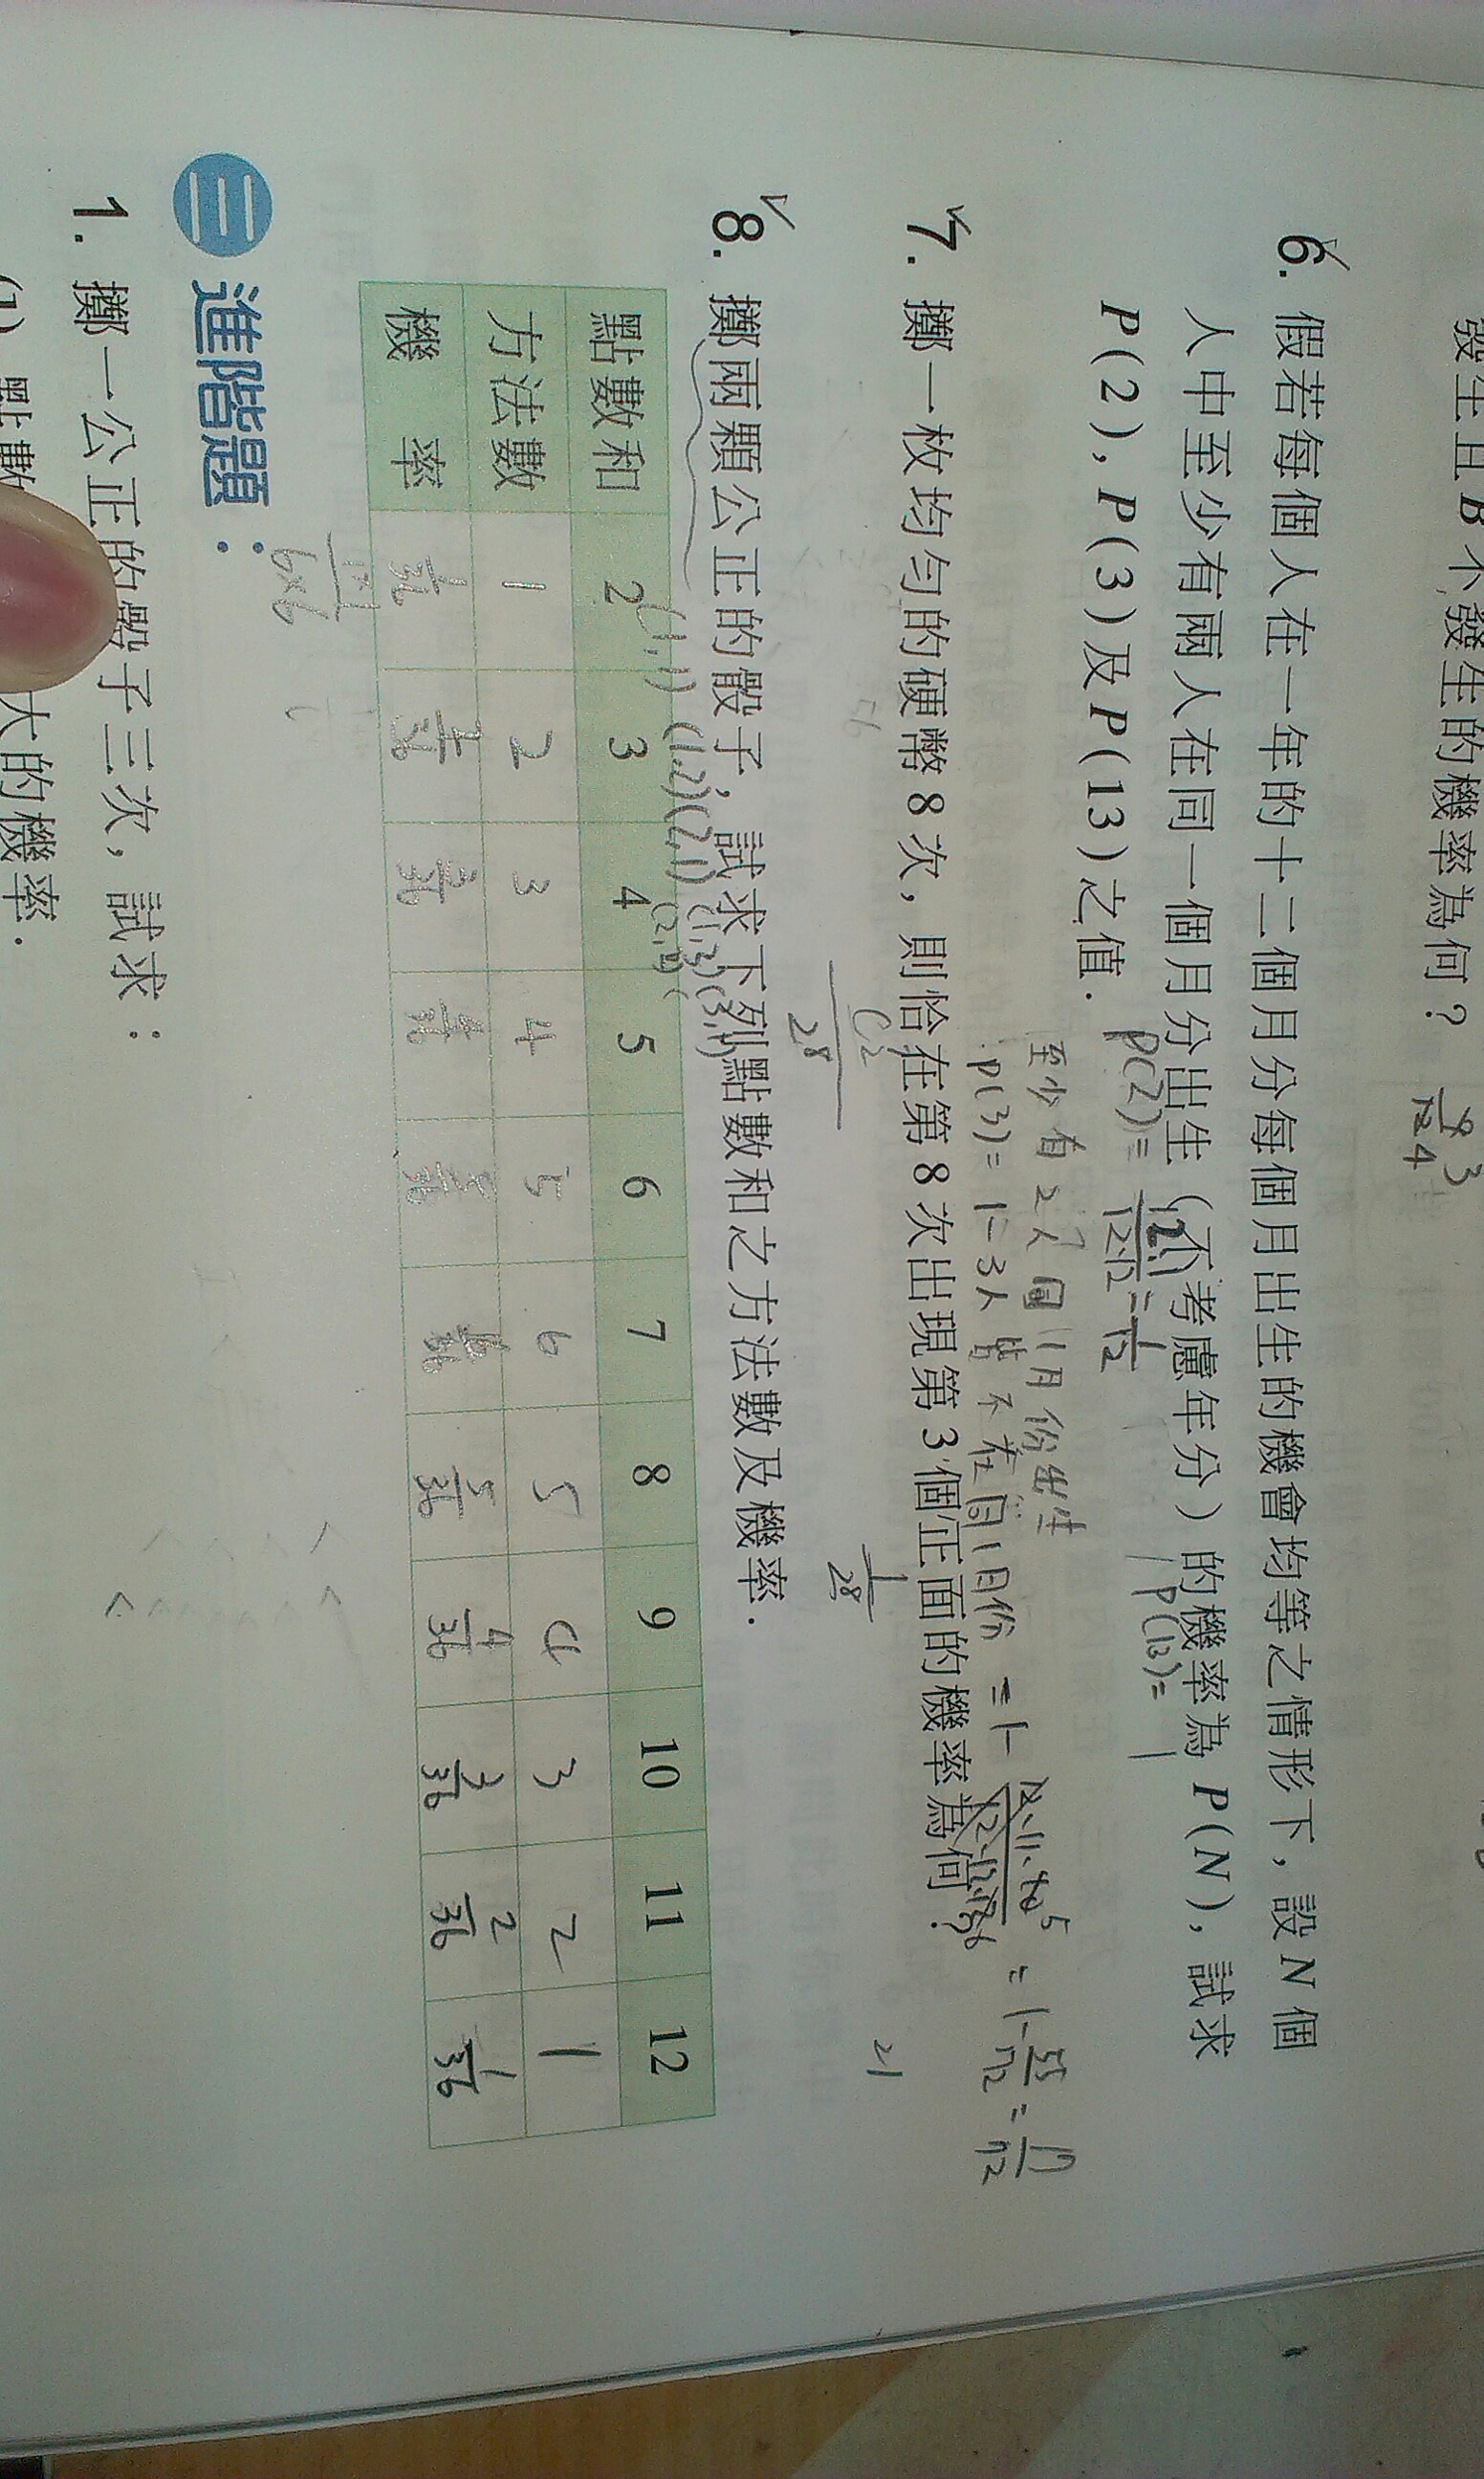 發生且B不發生的機率為何？ 9/12 3/4
6. 假若每個人在一年的十二個月分每個月出生的機會均等之情形下，設N個
人中至少有兩人在同一個月分出生（不考慮年分）的機率為P(N)，試求
P(2)，P(3)及P(13)之值．
P(2)= 12·1/12·12 = 1/12 P(13)= 1
至少有2人同1月份出生
P(3)= 1-3人皆不在同1月份 = 1- 12·11·10/12·12·12 = 1-55/72 = 17/72
7. 擲一枚均勻的硬幣8次，則恰在第8次出現第3個正面的機率為何？
2^8
1/2^8
21
8. 擲兩顆公正的骰子，試求下列點數和之方法數及機率．
(1,1) (1,2)(2,1) (1,3)(3,1)
(2,2)
點數和 2 3 4 5 6 7 8 9 10 11 12
方法數 1 2 3 4 5 6 5 4 3 2 1
機率 1/36 2/36 3/36 4/36 5/36 6/36 5/36 4/36 3/36 2/36 1/36
1×1/6×6
三 進階題：
1. 擲一公正的骰子三次，試求：
(1) 點數
大的機率．